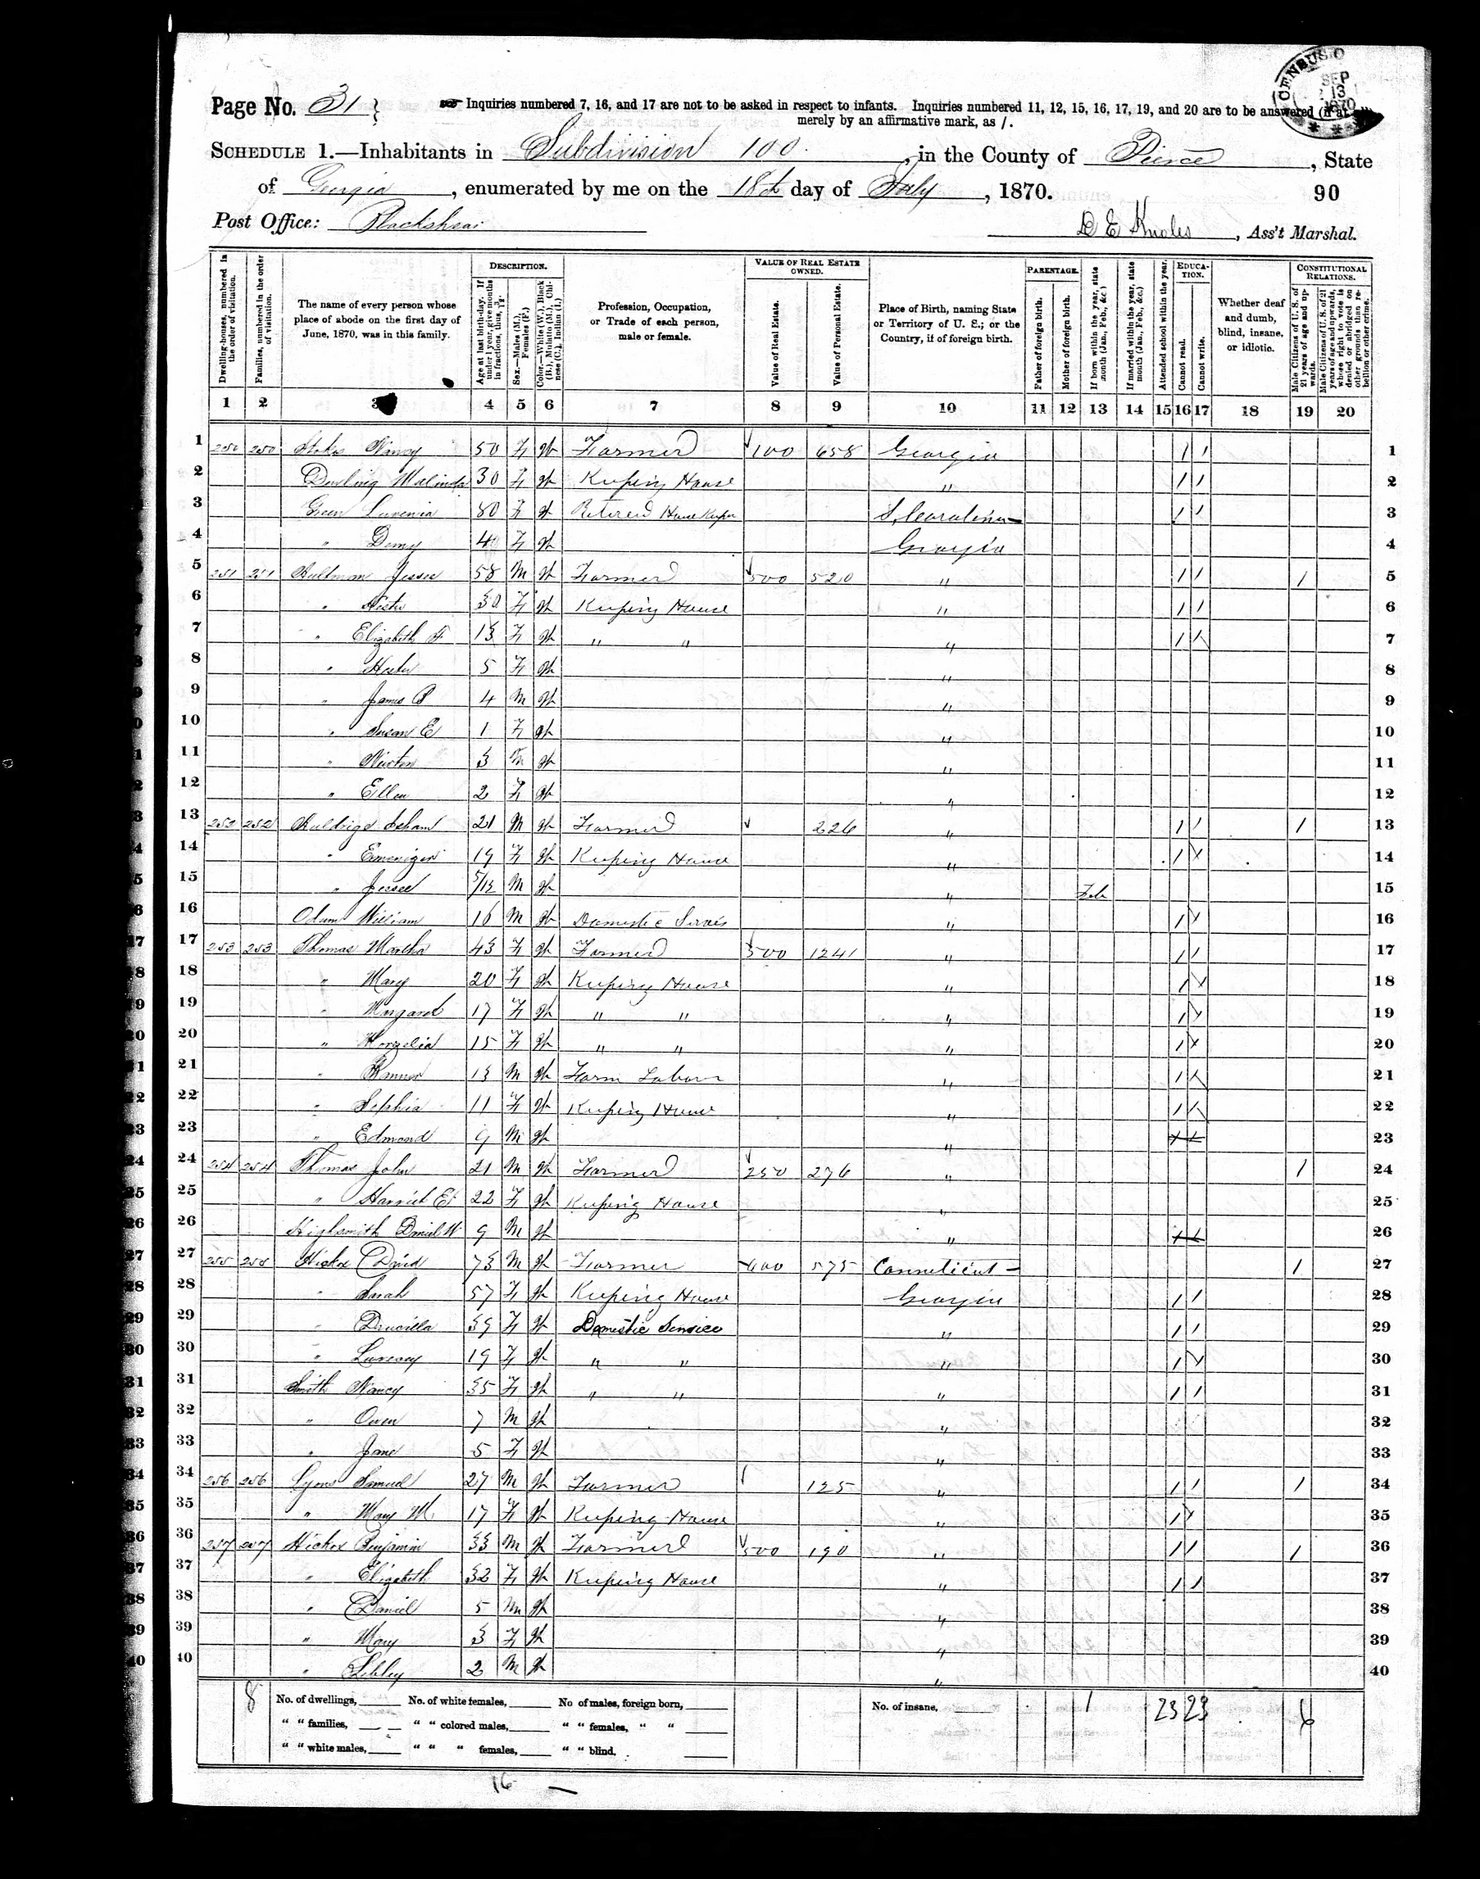 Page No. 31
Inquiries numbered 7, 16, and 17 are not to be asked in respect to infants. Inquiries numbered 11, 12, 15, 16, 17, 19, and 20 are to be answered (if at all)
merely by an affirmative mark, as /.
CENSUS O
SEP
13
1870
SCHEDULE 1.—Inhabitants in Subdivision 100, in the County of Pierce, State
of Georgia, enumerated by me on the 18th day of July, 1870. 90
Post Office: Blackshear
D E Knoles, Ass't Marshal.
DESCRIPTION. VALUE OF REAL ESTATE OWNED. PARENTAGE. EDUCATION. CONSTITUTIONAL RELATIONS.
Dwelling-houses, numbered in the order of visitation.
Families, numbered in the order of visitation.
The name of every person whose place of abode on the first day of June, 1870, was in this family.
Age at last birth-day. If under 1 year, give months in fractions, thus,
Sex.—Males (M.), Females (F.)
Color.—White (W.), Black (B.), Mulatto (M.), Chinese (C.), Indian (I.)
Profession, Occupation, or Trade of each person, male or female.
Value of Real Estate.
Value of Personal Estate.
Place of Birth, naming State or Territory of U. S.; or the Country, if of foreign birth.
Father of foreign birth.
Mother of foreign birth.
If born within the year, state month (Jan., Feb., &c.)
If married within the year, state month (Jan., Feb., &c.)
Attended school within the year.
Cannot read.
Cannot write.
Whether deaf and dumb, blind, insane, or idiotic.
Male Citizens of U. S. of 21 years of age and upwards.
Male Citizens of U. S. of 21 years of age and upwards, whose right to vote is denied or abridged on other grounds than rebellion or other crime.
1 2 3 4 5 6 7 8 9 10 11 12 13 14 15 16 17 18 19 20
1 250 250 Nancy 50 F W Farmer 100 658 Georgia / / 1
2 Dowling Malinda 30 F W Keeping House " / / 2
3 Green Lavenia 80 F W Retired House Keeper S. Carolina / / 3
4 " 4 F W Georgia 4
5 251 251 Jesse 58 M W Farmer 500 520 " / / / 5
6 " 30 F W Keeping House " / / 6
7 " Elizabeth F 13 F W " " " / / 7
8 " 5 F W " 8
9 " James P 4 M W " 9
10 " Susan E 1 F W " 10
11 " Newton 3 M W " 11
12 " Ellen 2 F W " 12
13 252 252 Isham 21 M W Farmer 226 " / / / 13
14 " 19 F W Keeping House " / / 14
15 " Jesse 5/12 M W " Feb 15
16 Odum William 16 M W Domestic " / / 16
17 253 253 Thomas Martha 43 F W Farmer 500 1241 " / / 17
18 " Mary 20 F W Keeping House " / / 18
19 " Margaret 17 F W " " " / / 19
20 " 15 F W " " " / / 20
21 " 13 M W Farm Labour " / / 21
22 " Sophia 11 F W Keeping House " / / 22
23 " Edmond 9 M W " 23
24 254 254 Thomas John 21 M W Farmer 250 276 " / 24
25 " Harriet E 22 F W Keeping House " 25
26 Highsmith Daniel W 9 M W " 26
27 255 255 Hickox David 73 M W Farmer 600 575 Connecticut / 27
28 " Sarah 57 F W Keeping House Georgia / / 28
29 " Drucilla 39 F W Domestic Service " / / 29
30 " 19 F W " " " / / 30
31 Smith Nancy 35 F W " " " / / 31
32 " Owen 7 M W " 32
33 " Jane 5 F W " 33
34 256 256 Lyons Samuel 27 M W Farmer 125 " / / / 34
35 " Mary M. 17 F W Keeping House " / / 35
36 257 257 Hickox Benjamin 33 M W Farmer 500 190 " / / / 36
37 " Elizabeth 32 F W Keeping House " / / 37
38 " Daniel 5 M W " 38
39 " Mary 3 F W " 39
40 " Sibley 2 M W " 40
8 No. of dwellings, No. of white females, No of males, foreign born, No. of insane, 1 23 23 6
" " families, " " colored males, " " females, " "
" " white males, " " " females, " " blind.
16 —